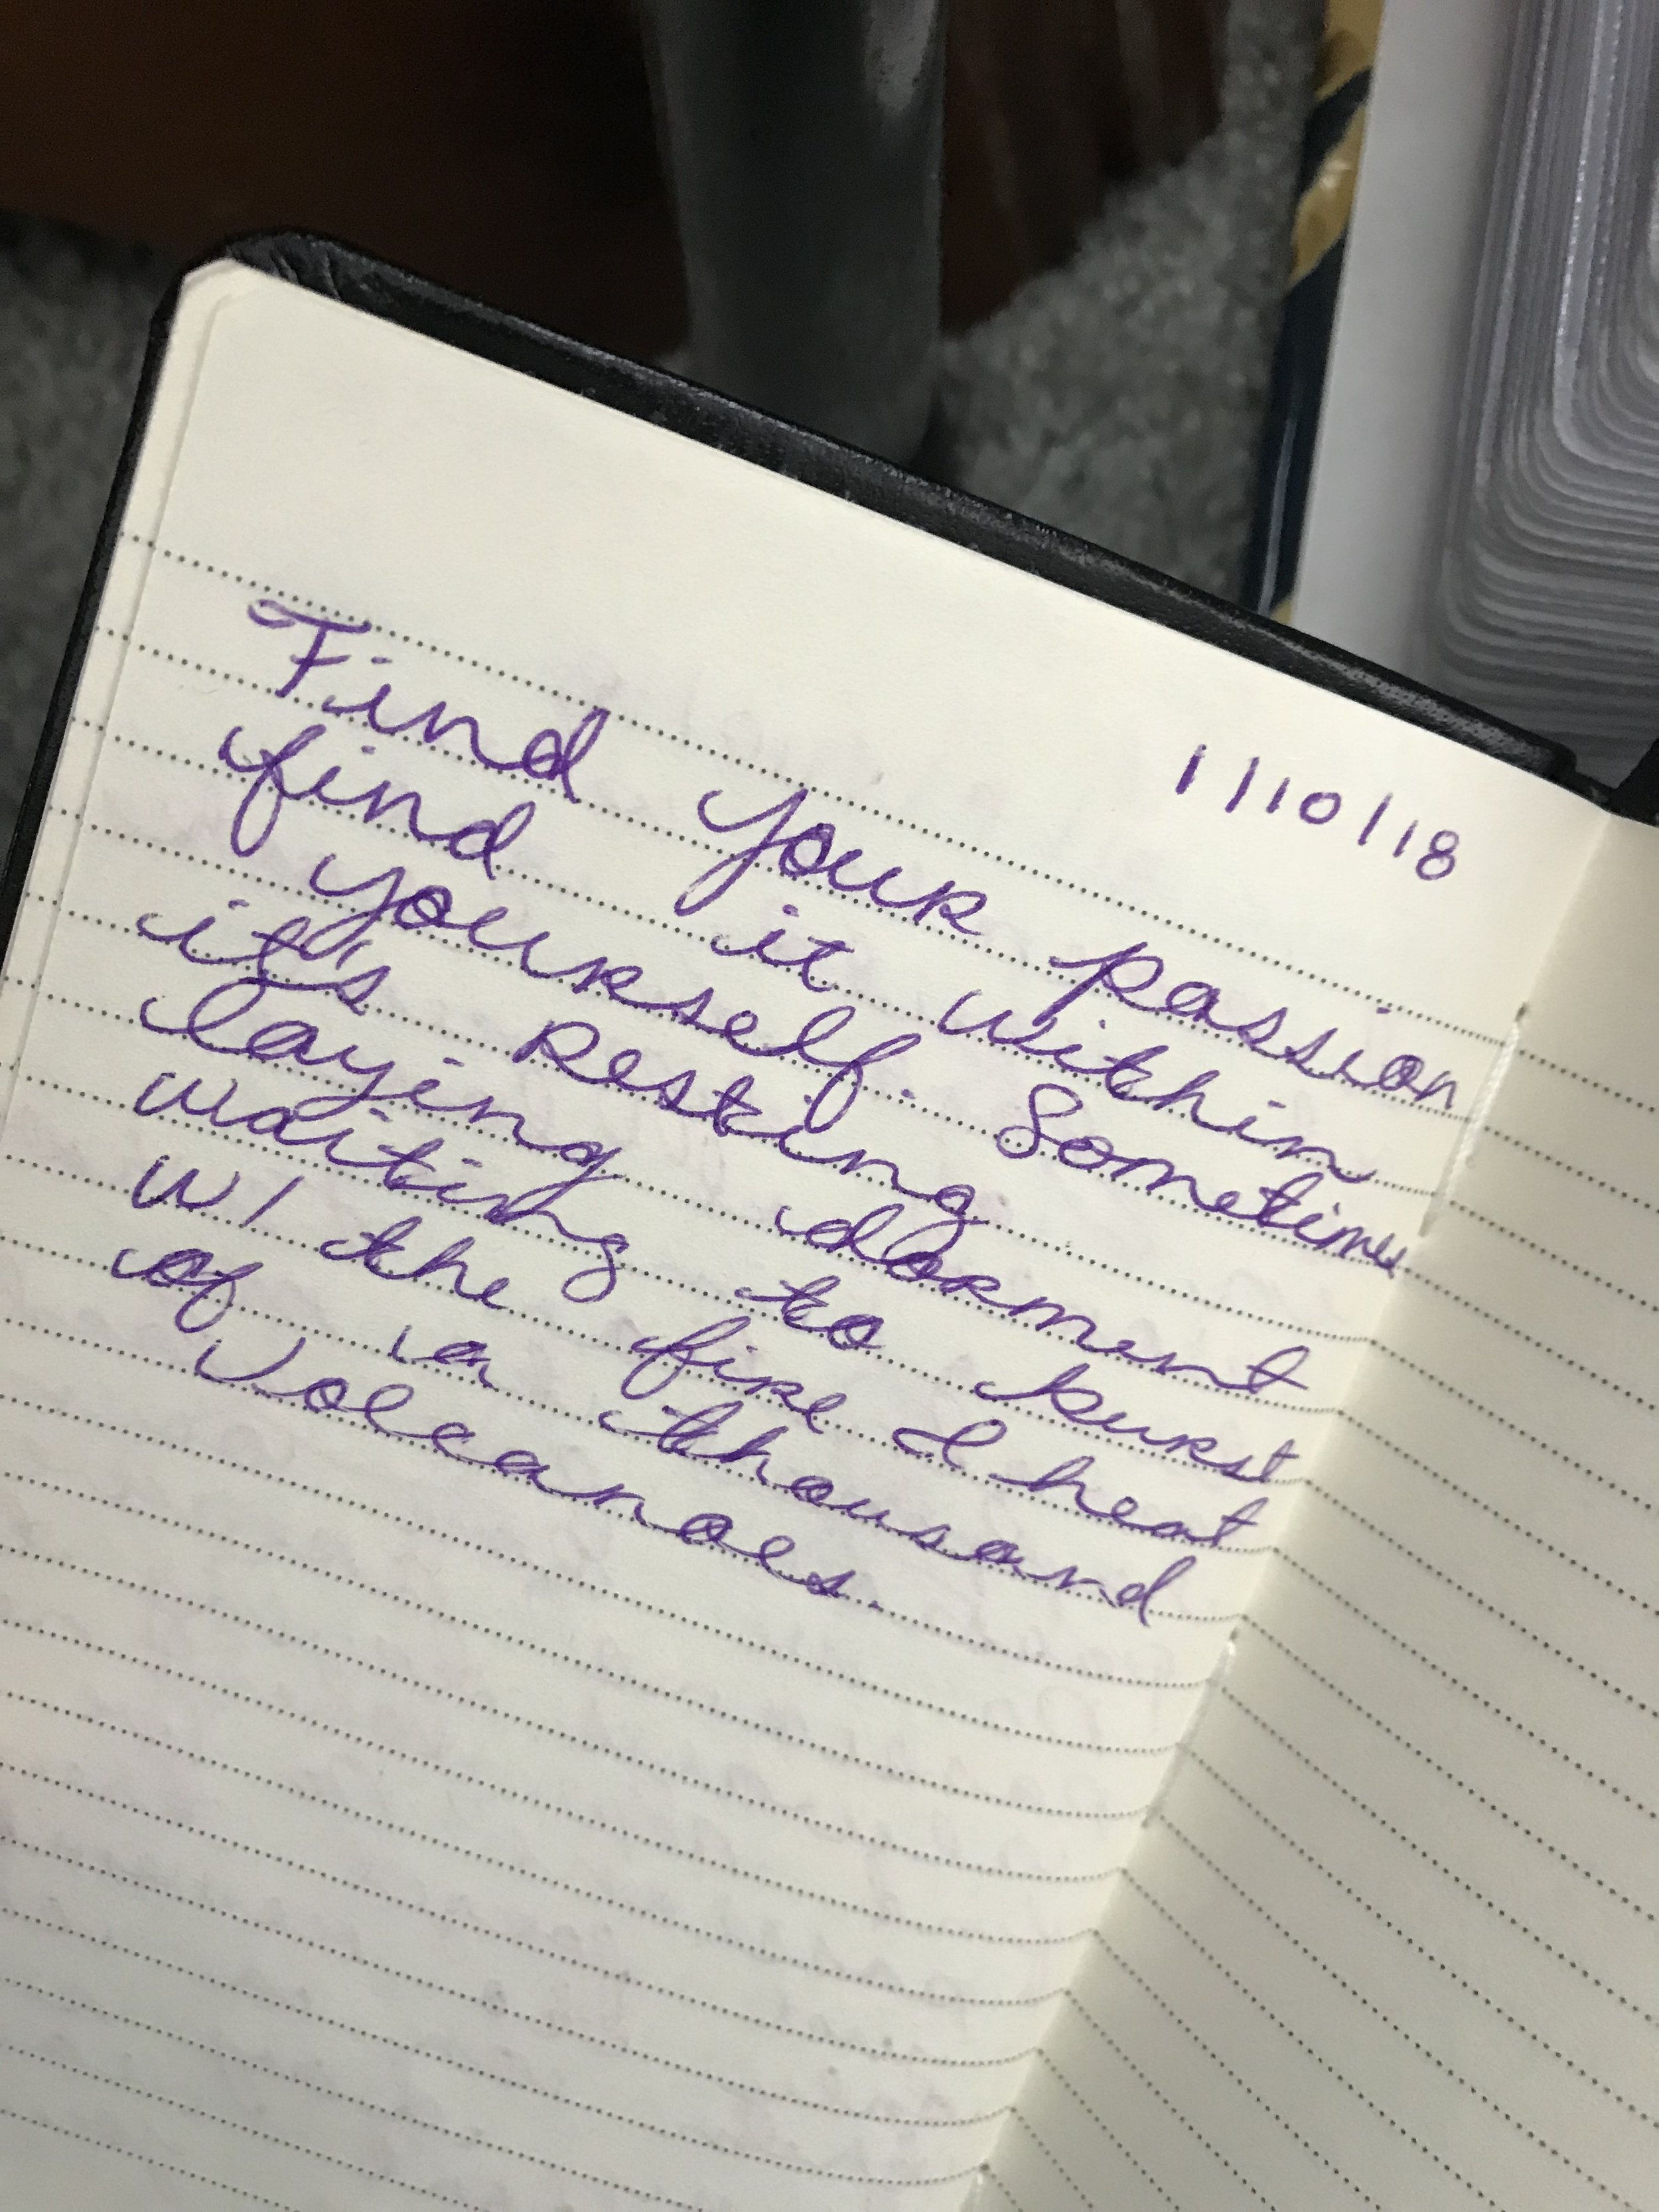 1/10/18
Find your passion
find it within
yourself. Sometimes
it's resting
laying dorment
waiting to burst
w/ the fire & heat
of a thousand
Volcanoes.